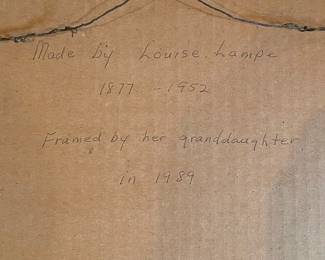 Made by Louise Lampe
1877 - 1952
Framed by her granddaughter
in 1989